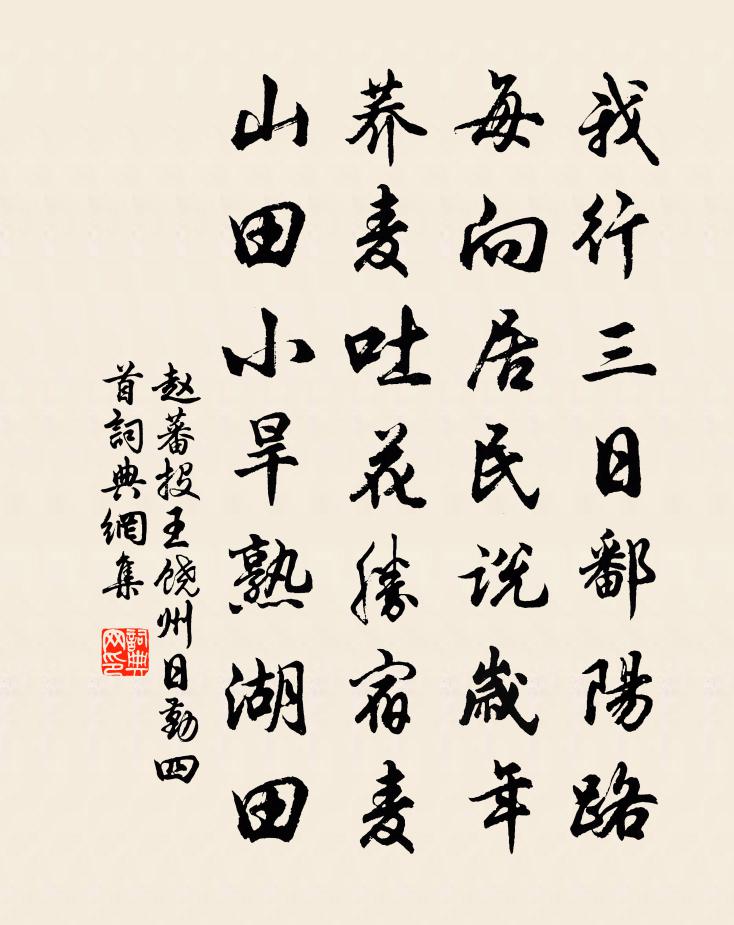 我行三日鄱陽路
每向居民説歲年
荞麦吐花勝宿麦
山田小旱熟湖田
赵蕃投王饶州日勤四
首詞典網集
詞典网印